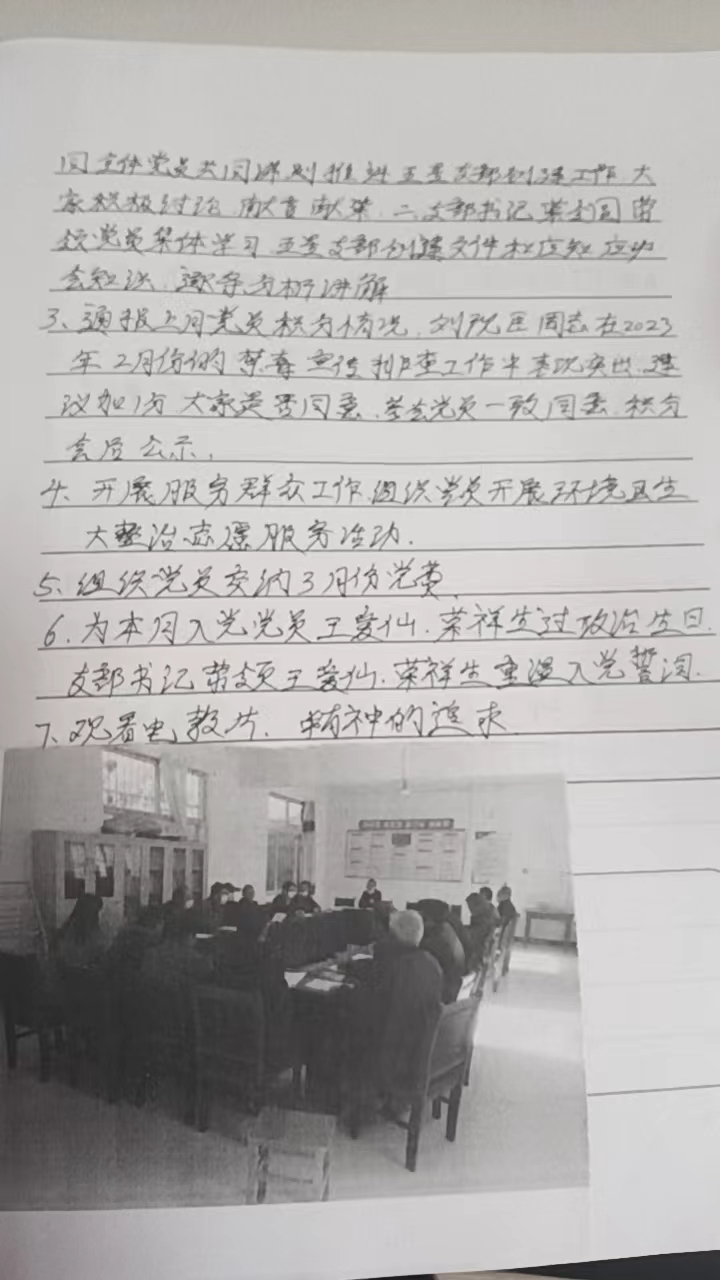 同全体党员共同谋划推进五星支部创建工作,大
家积极讨论,献言献策.二、支部书记 带
领党员集体学习五星支部创建文件和应知应
会知识,逐条 讲解
3、通报上月党员积分情况,刘 同志在2023
年2月份的禁毒宣传排查工作中表现突出,建
议加1分 大家是否同意,与会党员一致同意,积分
会后公示.
4.开展服务群众工作,组织党员开展环境卫生
大整治志愿服务活动.
5、组织党员交纳3月份党费.
6.为本月入党党员王爱仙.荣祥生过政治生日.
支部书记带领王爱仙.荣祥生重温入党誓词.
7、观看电教片. 精神的追求.